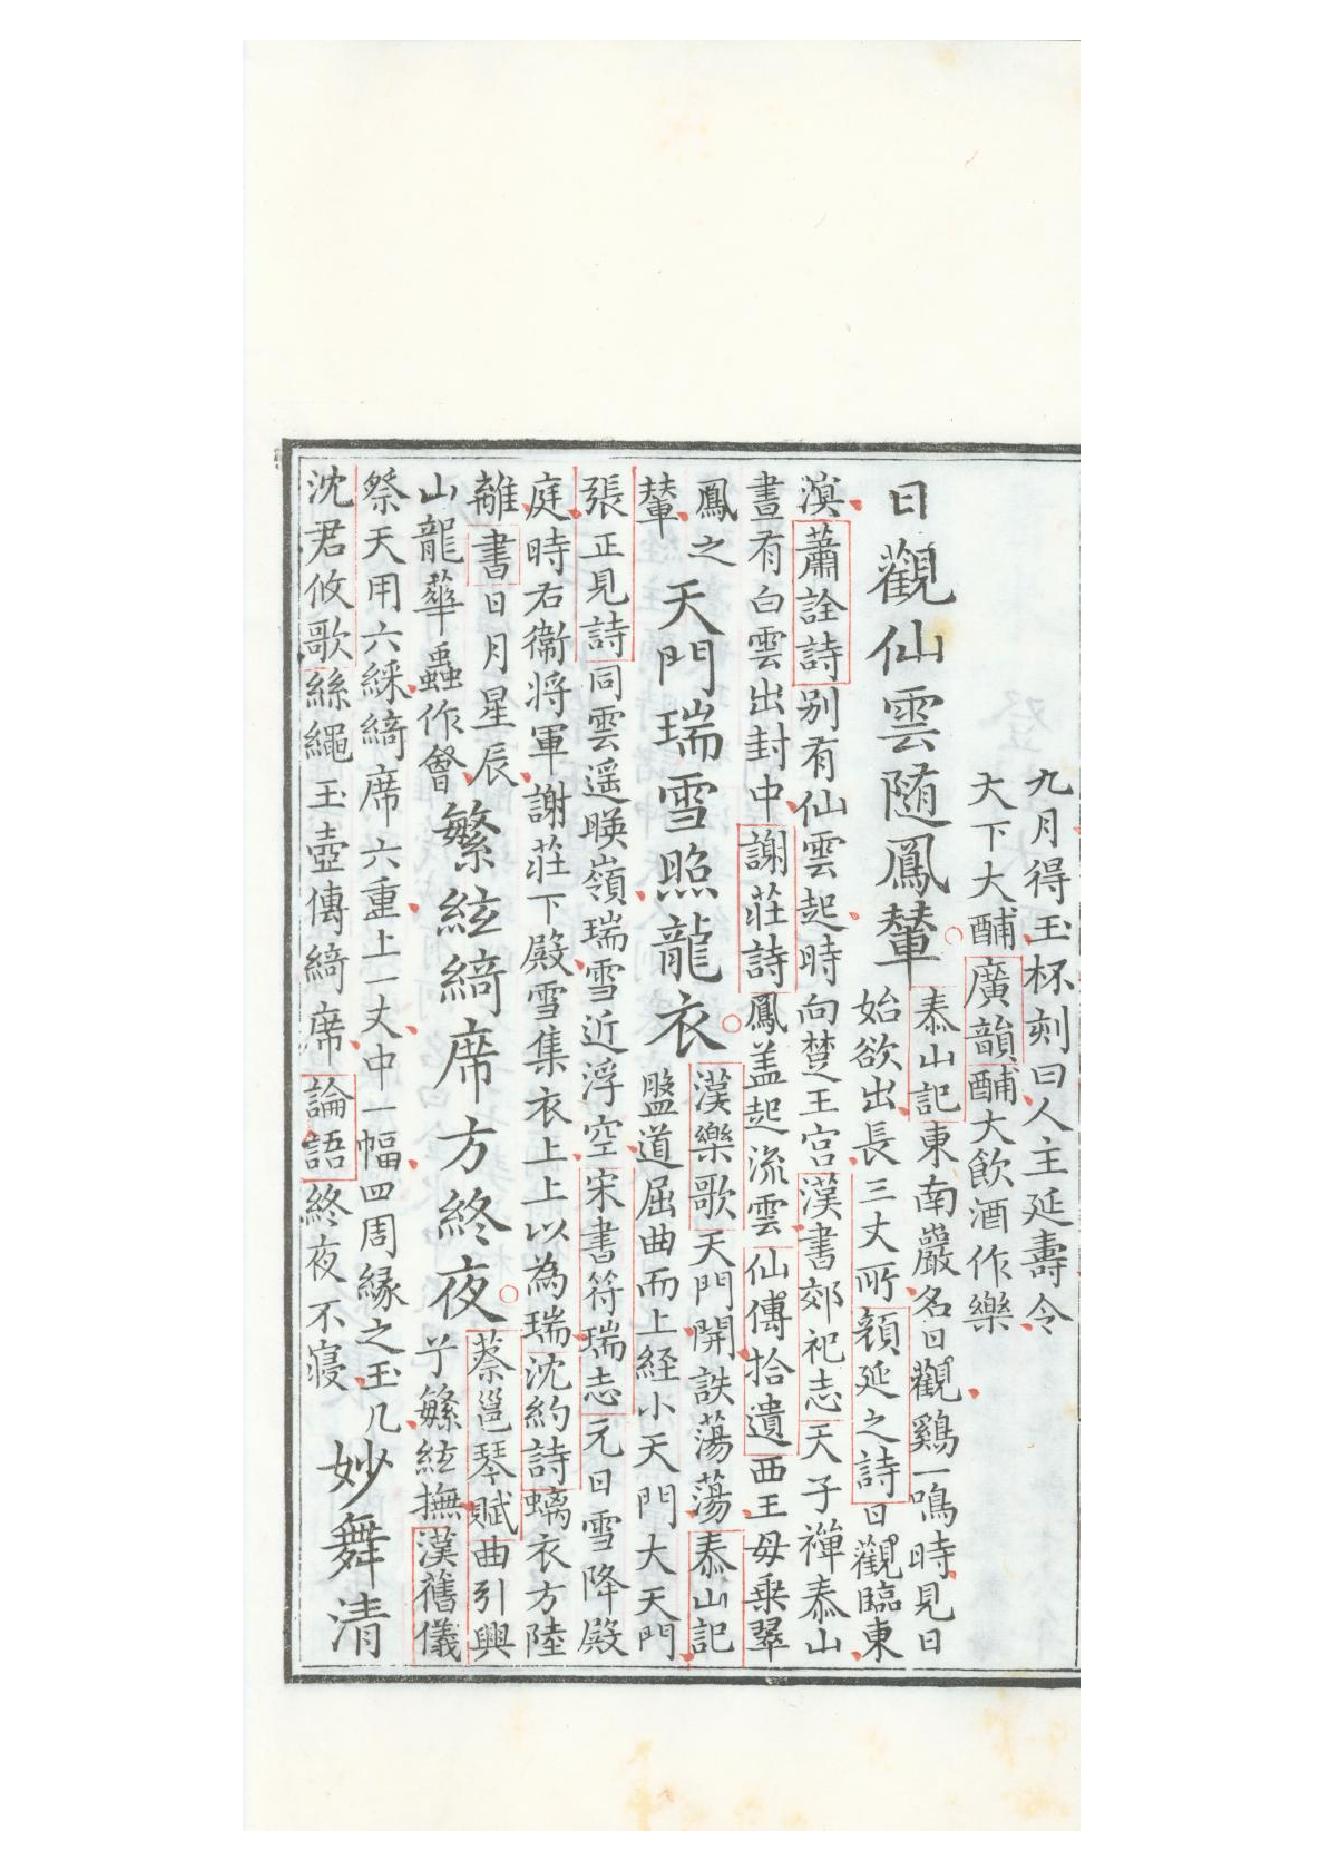 九月得玉杯刻曰人主延壽令
大下大酺廣韻酺大飲酒作樂
日觀仙雲随鳳輦
泰山記東南巖名日觀鷄一鳴時見日
始欲出長三丈所顔延之詩日觀臨東
溟蕭詮詩别有仙雲起時向楚王宫漢書郊祀志天子禪泰山
晝有白雲出封中謝莊詩鳳盖起流雲仙傳拾遺西王母乗翠
鳳之
輦
天門瑞雪照龍衣
漢樂歌天門開詄蕩蕩泰山記
盤道屈曲而上経小天門大天門
張正見詩同雲遥暎嶺瑞雪近浮空宋書符瑞志元日雪降殿
庭時右衞将軍謝莊下殿雪集衣上上以為瑞沈約詩螭衣方陸
離書日月星辰
山龍華蟲作㑹
繁絃綺席方終夜
蔡邕琴賦曲引興
于繁絃撫漢舊儀
祭天用六綵綺席六重上一丈中一幅四周縁之玉几
沈君攸歌絲繩玉壺傳綺席論語終夜不寝
妙舞清